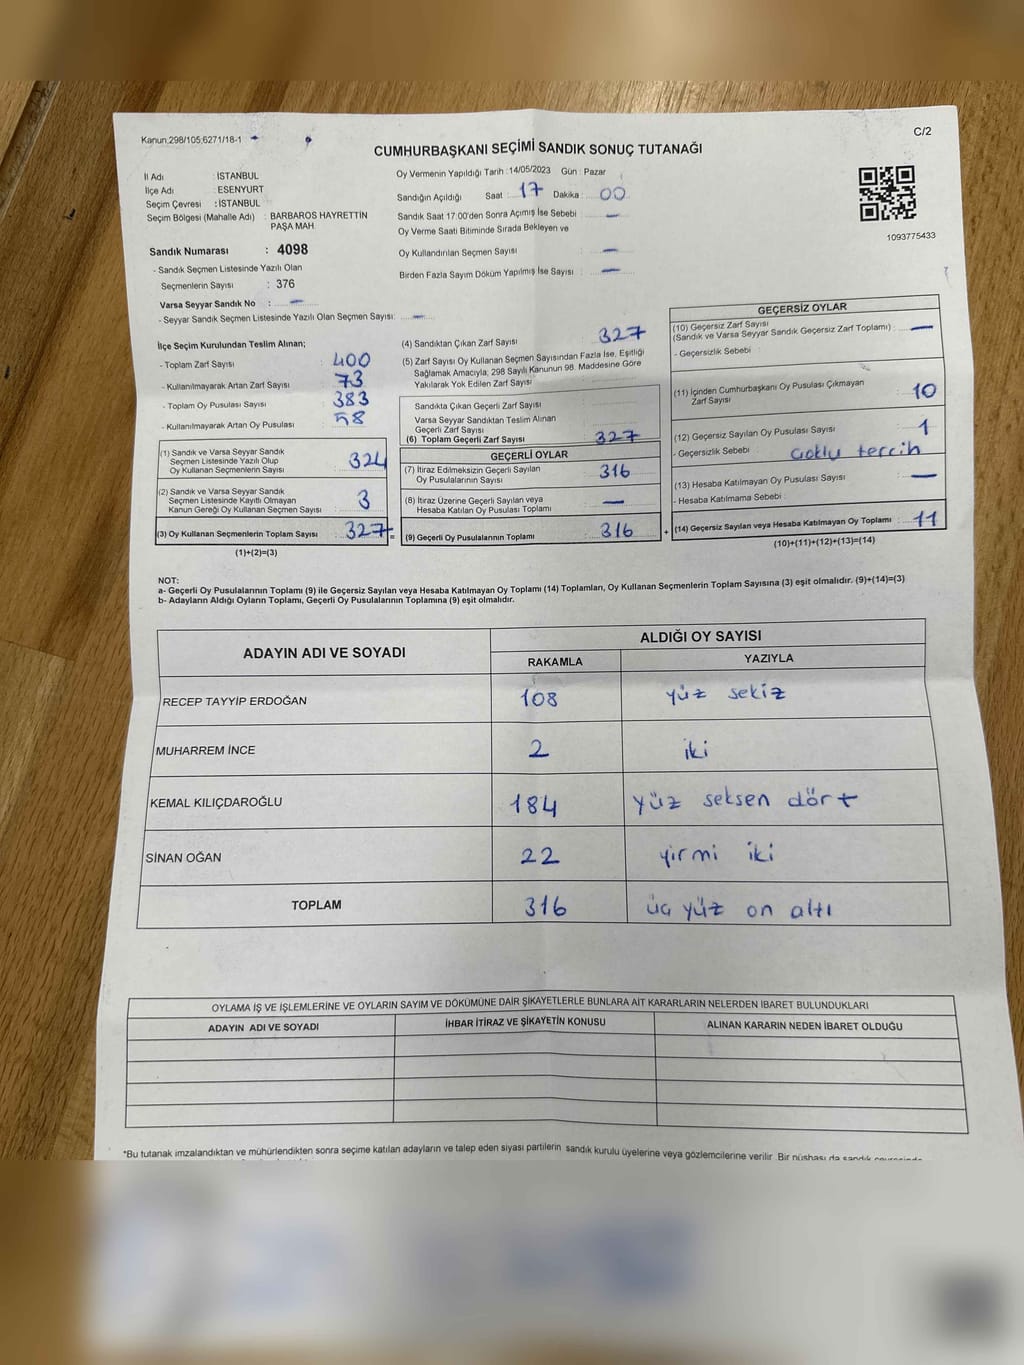 Kanun,298/105,6271/18-1
C/2
CUMHURBAŞKANI SEÇİMİ SANDIK SONUÇ TUTANAĞI
İl Adı : İSTANBUL
İlçe Adı : ESENYURT
Seçim Çevresi : İSTANBUL
Seçim Bölgesi (Mahalle Adı) : BARBAROS HAYRETTİN
PAŞA MAH
Sandık Numarası : 4098
- Sandık Seçmen Listesinde Yazılı Olan
Seçmenlerin Sayısı : 376
Varsa Seyyar Sandık No : —
- Seyyar Sandık Seçmen Listesinde Yazılı Olan Seçmen Sayısı: —
Oy Vermenin Yapıldığı Tarih :14/05/2023 Gün : Pazar
Sandığın Açıldığı Saat : 17 Dakika : 00
Sandık Saat 17:00'den Sonra Açımış İse Sebebi : —
Oy Verme Saati Bitiminde Sırada Bekleyen ve
Oy Kullandırılan Seçmen Sayısı : —
Birden Fazla Sayım Döküm Yapılmış İse Sayısı : —
1093775433
İlçe Seçim Kurulundan Teslim Alınan;
- Toplam Zarf Sayısı : 400
- Kullanılmayarak Artan Zarf Sayısı : 73
- Toplam Oy Pusulası Sayısı : 383
- Kullanılmayarak Artan Oy Pusulası : 58
(1) Sandık ve Varsa Seyyar Sandık
Seçmen Listesinde Yazılı Olup
Oy Kullanan Seçmenlerin Sayısı : 324
(2) Sandık ve Varsa Seyyar Sandık
Seçmen Listesinde Kayıtlı Olmayan
Kanun Gereği Oy Kullanan Seçmen Sayısı : 3
(3) Oy Kullanan Seçmenlerin Toplam Sayısı : 327
(1)+(2)=(3)
(4) Sandıktan Çıkan Zarf Sayısı : 327
(5) Zarf Sayısı Oy Kullanan Seçmen Sayısından Fazla İse, Eşitliği
Sağlamak Amacıyla; 298 Sayılı Kanunun 98. Maddesine Göre
Yakılarak Yok Edilen Zarf Sayısı :
Sandıkta Çıkan Geçerli Zarf Sayısı :
Varsa Seyyar Sandıktan Teslim Alınan
Geçerli Zarf Sayısı :
(6) Toplam Geçerli Zarf Sayısı : 327
GEÇERLİ OYLAR
(7) İtiraz Edilmeksizin Geçerli Sayılan
Oy Pusulalarının Sayısı : 316
(8) İtiraz Üzerine Geçerli Sayılan veya
Hesaba Katılan Oy Pusulası Toplamı : —
(9) Geçerli Oy Pusulalarının Toplamı : 316
GEÇERSİZ OYLAR
(10) Geçersiz Zarf Sayısı
(Sandık ve Varsa Seyyar Sandık Geçersiz Zarf Toplamı) : —
- Geçersizlik Sebebi :
(11) İçinden Cumhurbaşkanı Oy Pusulası Çıkmayan
Zarf Sayısı : 10
(12) Geçersiz Sayılan Oy Pusulası Sayısı : 1
- Geçersizlik Sebebi : çoklu tercih
(13) Hesaba Katılmayan Oy Pusulası Sayısı : —
- Hesaba Katılmama Sebebi :
(14) Geçersiz Sayılan veya Hesaba Katılmayan Oy Toplamı : 11
(10)+(11)+(12)+(13)=(14)
NOT:
a- Geçerli Oy Pusulalarının Toplamı (9) ile Geçersiz Sayılan veya Hesaba Katılmayan Oy Toplamı (14) Toplamları, Oy Kullanan Seçmenlerin Toplam Sayısına (3) eşit olmalıdır. (9)+(14)=(3)
b- Adayların Aldığı Oyların Toplamı, Geçerli Oy Pusulalarının Toplamına (9) eşit olmalıdır.
ADAYIN ADI VE SOYADI ALDIĞI OY SAYISI
RAKAMLA YAZIYLA
RECEP TAYYİP ERDOĞAN 108 yüz sekiz
MUHARREM İNCE 2 iki
KEMAL KILIÇDAROĞLU 184 yüz seksen dört
SİNAN OĞAN 22 yirmi iki
TOPLAM 316 üç yüz on altı
OYLAMA İŞ VE İŞLEMLERİNE VE OYLARIN SAYIM VE DÖKÜMÜNE DAİR ŞİKAYETLERLE BUNLARA AİT KARARLARIN NELERDEN İBARET BULUNDUKLARI
ADAYIN ADI VE SOYADI İHBAR İTİRAZ VE ŞİKAYETİN KONUSU ALINAN KARARIN NEDEN İBARET OLDUĞU
*Bu tutanak imzalandıktan ve mühürlendikten sonra seçime katılan adayların ve talep eden siyasi partilerin sandık kurulu üyelerine veya gözlemcilerine verilir. Bir nüshası da sandık